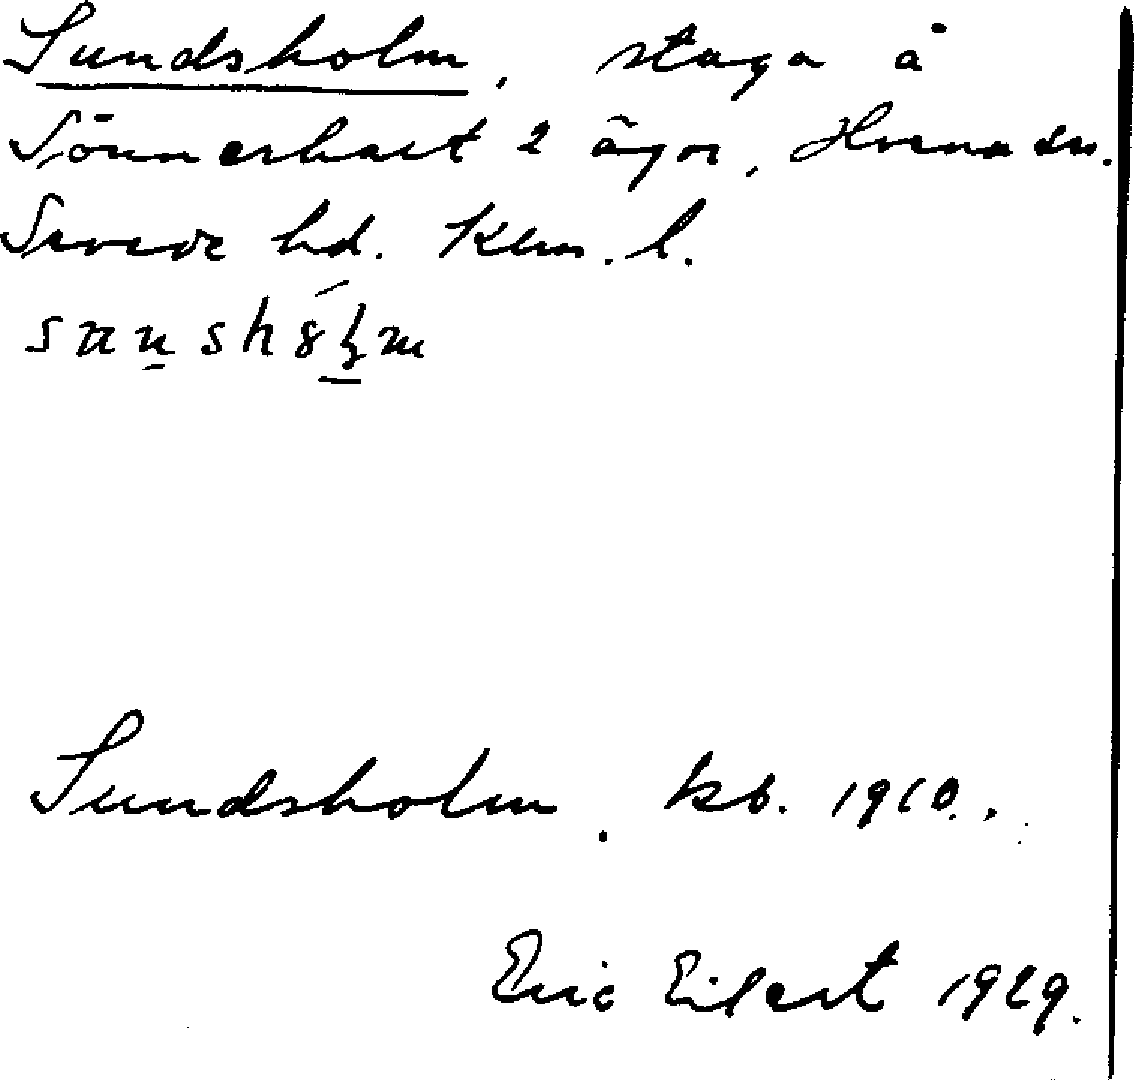 Sundsholm, stuga å
Sönnerhult 2 ägor, Horna sn.
Sevede hd. Klm. l.
Sundsholm. kb. 1910.
Eric Eilert 1929.